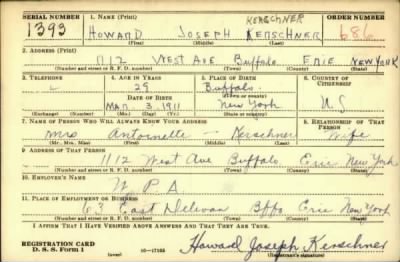 SERIAL NUMBER 1. NAME (Print) ORDER NUMBER
KERSCHNER
1393 HOWARD JOSEPH KERSCHNER 686
(First) (Middle) (Last)
2. ADDRESS (Print)
1112 WEST AVE Buffalo ERIE NEW YORK
(Number and street or R. F. D. number) (Town) (County) (State)
3. TELEPHONE 4. AGE IN YEARS 5. PLACE OF BIRTH 6. COUNTRY OF CITIZENSHIP
29 Buffalo
DATE OF BIRTH (Town or county)
Mar 3, 1911 New York U S
(Mo.) (Day) (Yr.) (State or country)
7. NAME OF PERSON WHO WILL ALWAYS KNOW YOUR ADDRESS 8. RELATIONSHIP OF THAT PERSON
Mrs Antoinette — Kerschner Wife
(Mr., Mrs., Miss) (First) (Middle) (Last)
9. ADDRESS OF THAT PERSON
1112 West Ave Buffalo Erie New York
(Number and street or R. F. D. number) (Town) (County) (State)
10. EMPLOYER'S NAME
W. P. A.
11. PLACE OF EMPLOYMENT OR BUSINESS
63 East Delevan Bffo Erie New York
(Number and street or R. F. D. number) (Town) (County) (State)
I AFFIRM THAT I HAVE VERIFIED ABOVE ANSWERS AND THAT THEY ARE TRUE.
REGISTRATION CARD
D. S. S. Form 1 (over) 16—17105 Howard Joseph Kerschner
(Registrant's signature)